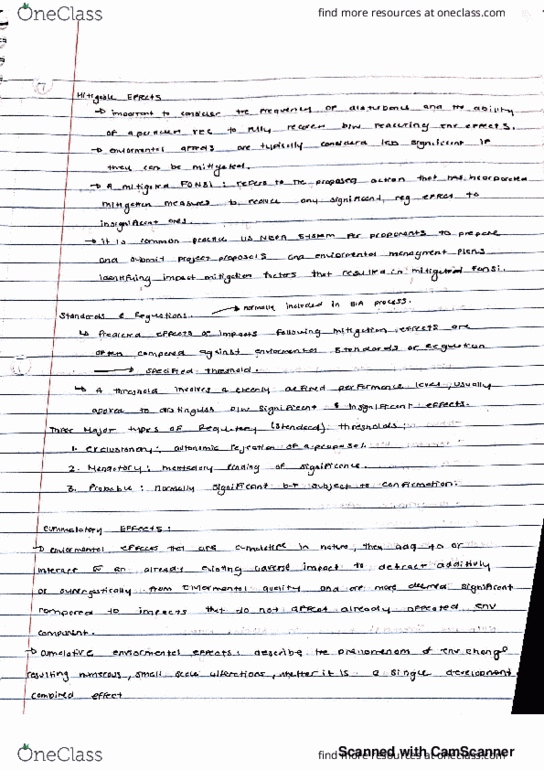 OneClass
find more resources at oneclass.com
7
Mitigable Effects
→ important to consider the frequency of disturbance and the ability
of a particular VEC to fully recover b/w reacuring env effects.
→ enviormental affects are typically considerd less significant if
they can be mitigated.
→ A mitigated FONSI : refers to the proposed action that has incorporated
mitigation measures to reduce any significant, neg effect to
insignificant ones.
→ it is common practice US NEPA system for proponents to prepare
and submit project proposals and enviormental managment plans
identifying impact mitigation factors that resulted in mitigated FONSI.
Standards & Regulations. → normally included in EIA process.
↳ Predicted effects or impacts following mitigation, effects are
often compared against enviormental Standards or Regulation
→ specified threshold.
↳ A threshold involves a clearly defined performance level, usually
applied to distinguish b/w Significant & Insignificant effects.
Three Major types of Regulatory (Standard) thresholds:
1. Exclusionary: automatic rejection of a proposal.
2. Mandatory: mandatory finding of significance.
3. Probable : normally significant but subject to confirmation.
Cummulatory Effects:
→ enviormental effects that are cumulative in nature, they add to or
interact an already existing adverse impact to detract additively
or synergistically from enviormental quality and are more deemed significant
compared to impacts that do not affect already affected env
component.
→ Cumulative enviormental effects: describe the phenomenom of env change
resulting numerous, small scale alterations, whether it is a single development
combined effect
OneClass
find more resources at oneclass.com
Scanned with CamScanner